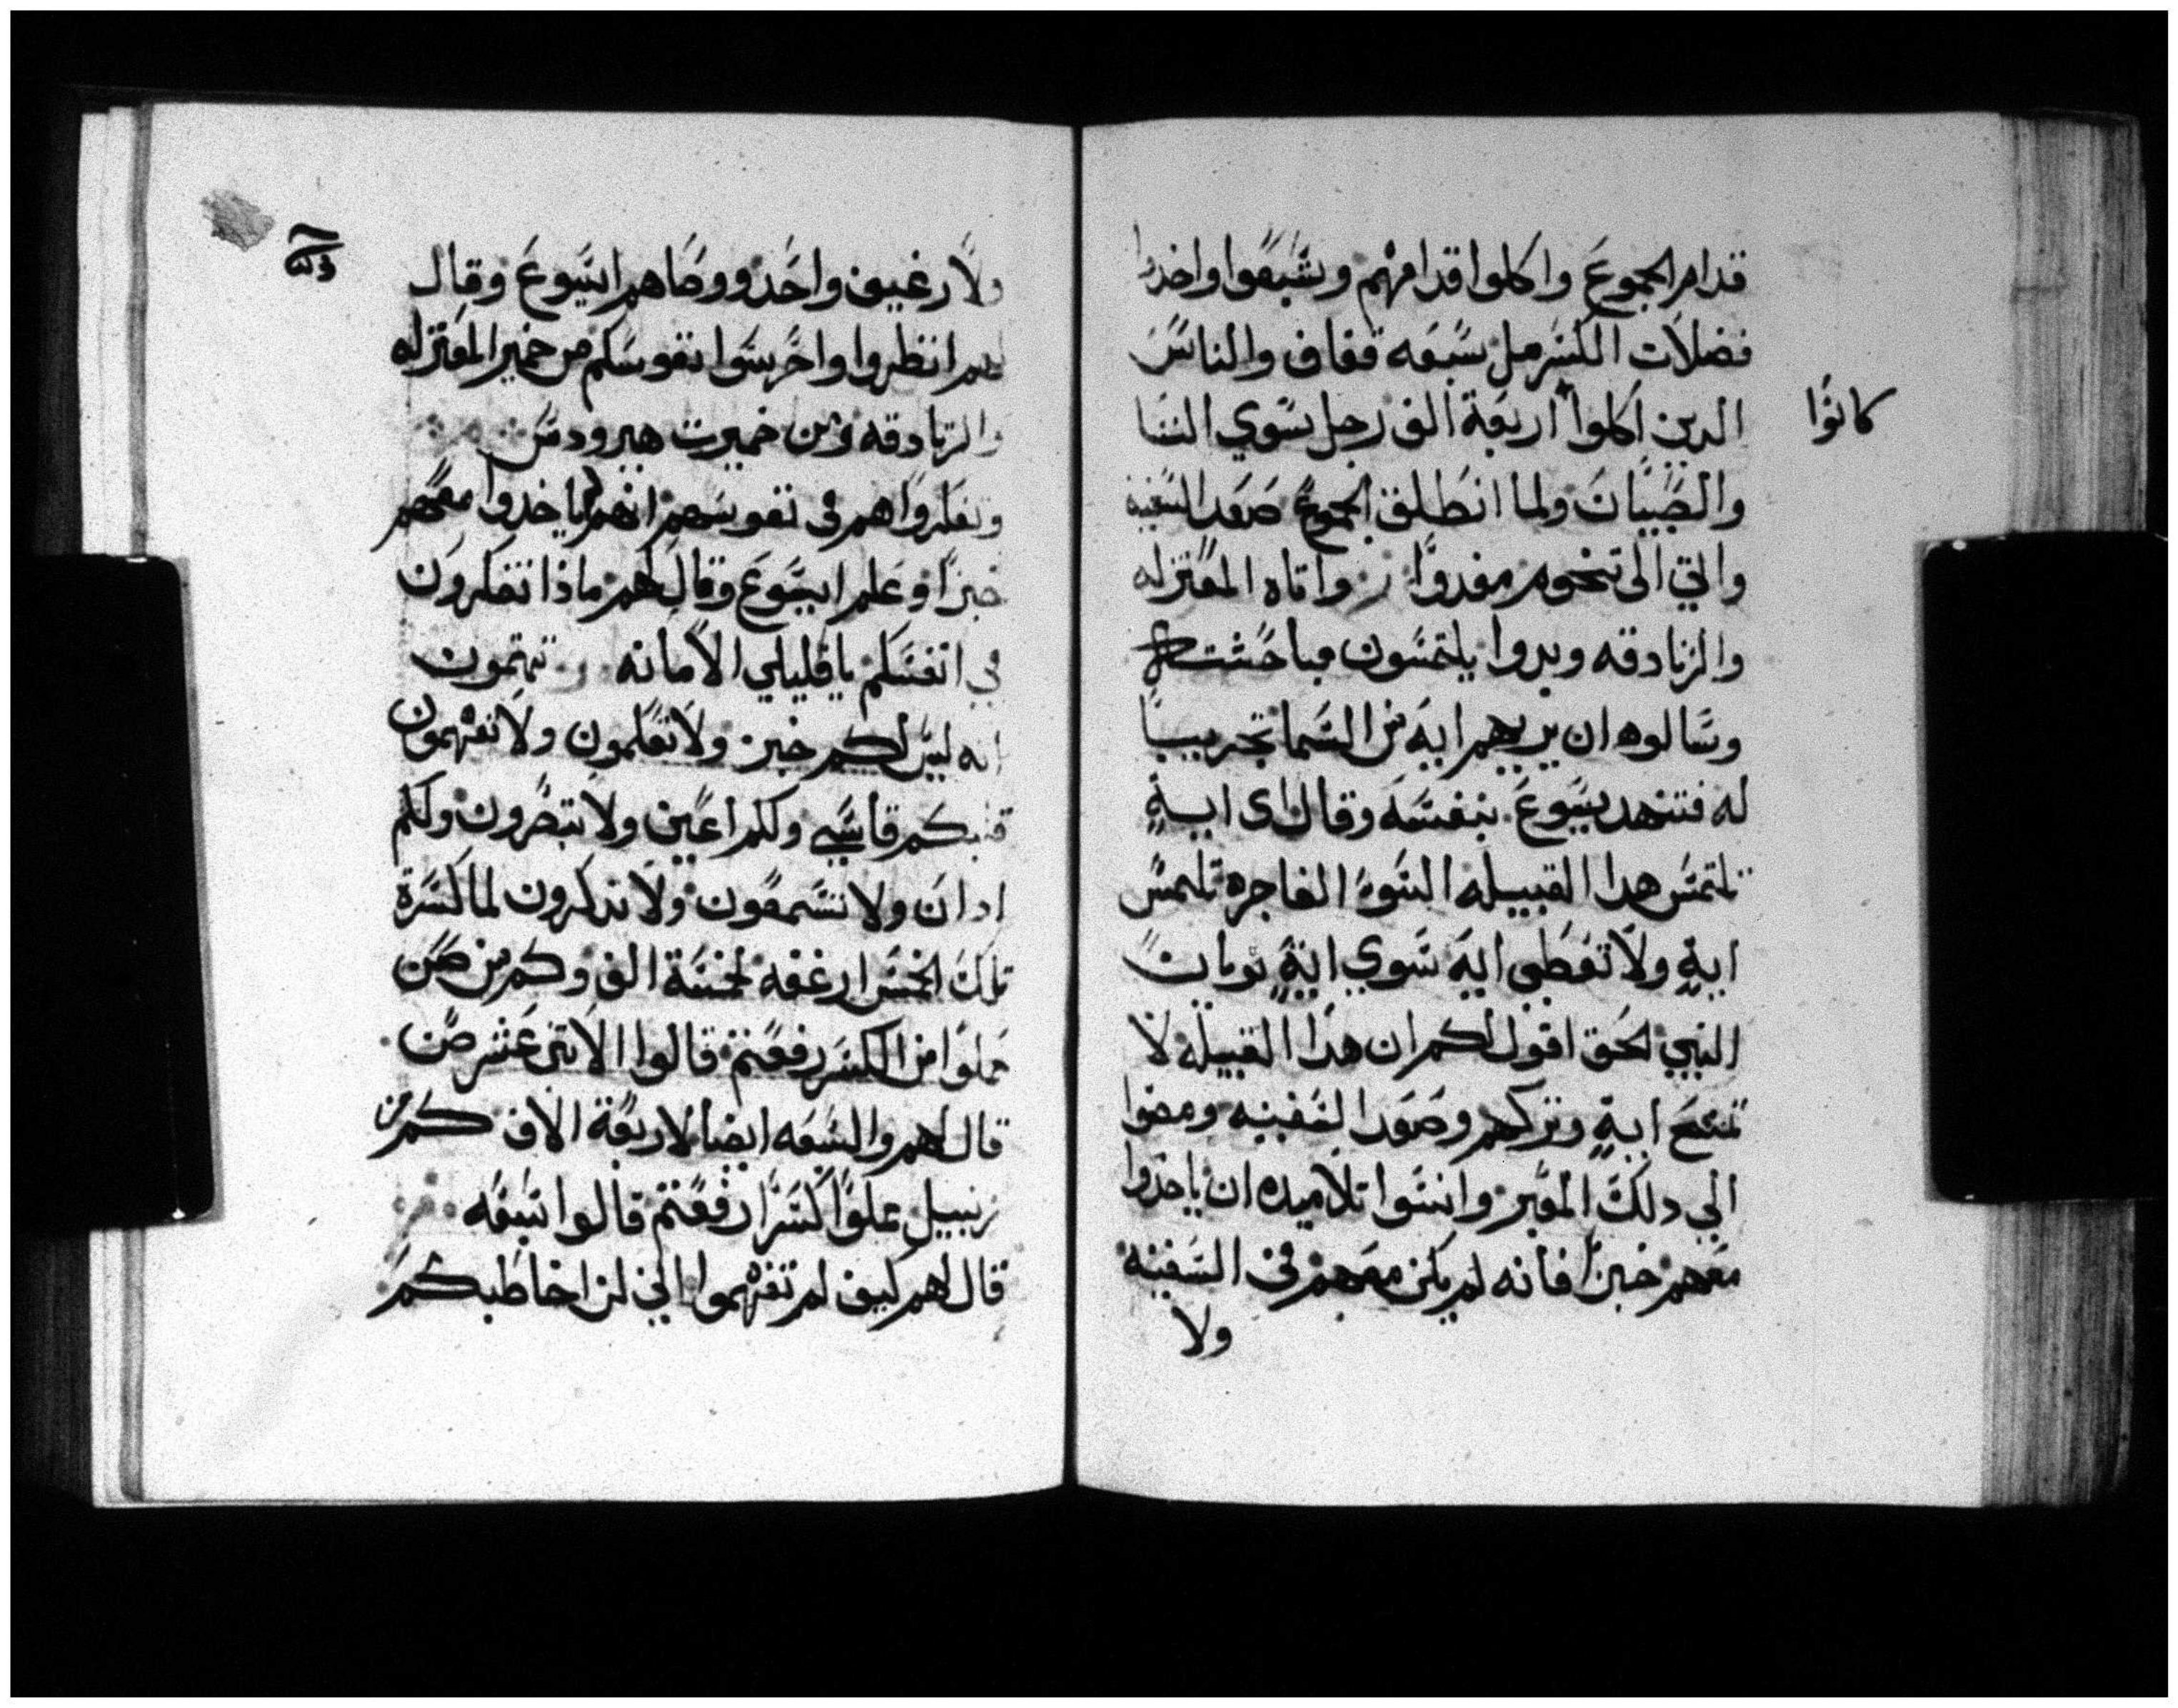 قدام الجموع واكلوا قدامهم وشبعوا واخدوا
فضلات الكسر مل سبعه قفاف والناس
الدين اكلوا اربعة الف رجل سوي النسا
كانوا
والصبيان ولما انطلق الجموع صعد السفينه
واتي الى تخوم مغدوا واتاه المعتزله
والزنادقه وبدوا يلتمسون مباحثته
وسالوه ان يريهم ايه من السما تجريبا
له فتنهد يسوع بنفسه وقال اى ايةٍ
تلتمس هدا القبيله السوء الفاجره تلتمس
ايةٍ ولا تعطى ايه سوي ايةٍ يونان
النبي الحق اقول لكم ان هدا القبيله لا
تمنح ايةٍ وتركهم وصعد السفينه ومضوا
الي دلك المعبر وانسوا تلاميده ان ياخدوا
معهم خبزا فانه لم يكن معهم في السفينه
ولا
ولا رغيف واحد ووصاهم ايسوع وقال
لهم انظروا واحرسوا نفوسكم من خمير المعتزله
والزنادقه ومن خميرت هيرودس
وتفكروا هم في نفوسهم انهم لم ياخدوا معهم
خبزا وعلم ايسوع وقال لهم ماذا تفكرون
في انفسكم يا قليلي الامانه تهتمون
انه ليس لكم خبز ولا تعلمون ولا تفهمون
قلبكم قاسي ولكم اعين ولا تبصرون ولكم
ادان ولا تسمعون ولا تدكرون لما كسرة
تلك الخمس ارغفه لخمسة الف وكم من صن
مملوا من الكسر رفعتم قالوا الاتنى عشر صن
قال لهم والسبعه ايضا لاربعة الاف كم من
زنبيل مملوا كسرا رفعتم قالوا سبعه
قال لهم كيف لم تفهموا اني لن اخاطبكم